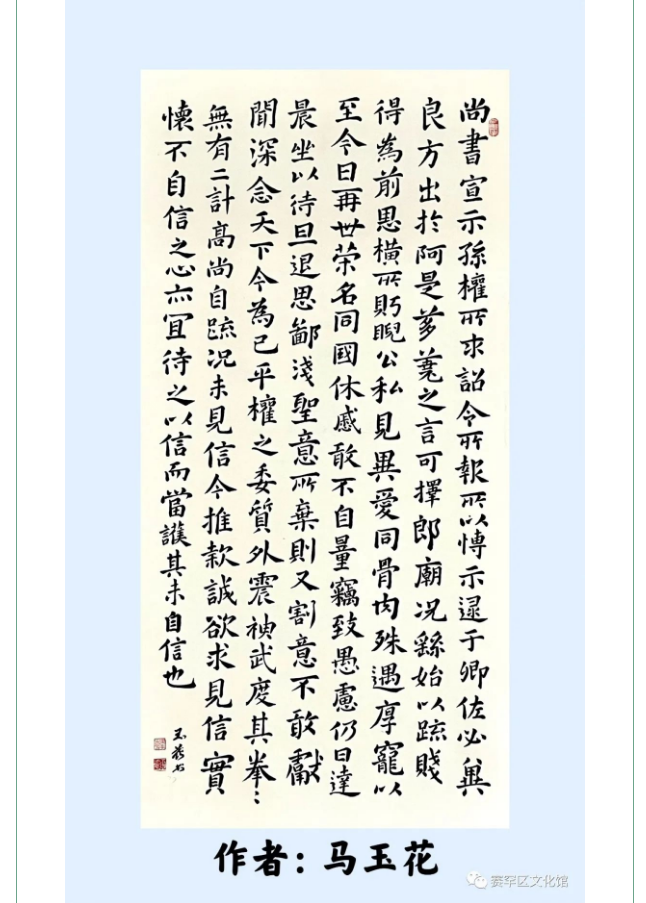 尚書宣示孫權所求詔令所報所以博示逮于卿佐必冀
良方出於阿是芻蕘之言可擇郎廟况繇始以疏賤
得為前恩橫所眄睨公私見異愛同骨肉殊遇厚寵以
至今日再世荣名同國休慼敢不自量竊致愚慮仍日達
晨坐以待旦退思鄙淺聖意所棄則又割意不敢獻
聞深念天下今為已平權之委質外震神武度其拳:
無有二計高尚自疏况未見信今推款誠欲求見信實
懷不自信之心亦宜待之以信而當護其未自信也
玉花书
作者：马玉花
赛罕区文化馆